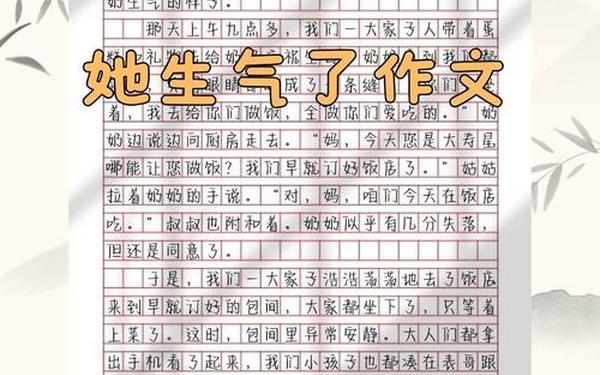 奶生气的样子。
那天上午九点多，我们一大家子人带着蛋
她生气了作文
着，我去给你们做饭，全做你们爱吃的。”奶
奶边说边向厨房走去。“妈，今天您是大寿星
哪能让您做饭？我们早就订好饭店了。”姑姑
拉着奶奶的手说。“对，妈，咱们今天在饭店
吃。”叔叔也附和着。奶奶似乎有几分失落，
但还是同意了。
于是，我们一大家子浩浩荡荡地去了饭店
来到早就订好的包间，大家都坐下了，只等着
上菜了。这时，包间里异常安静。大人们都拿
出手机看了起来，我们小孩子也都凑在表哥跟